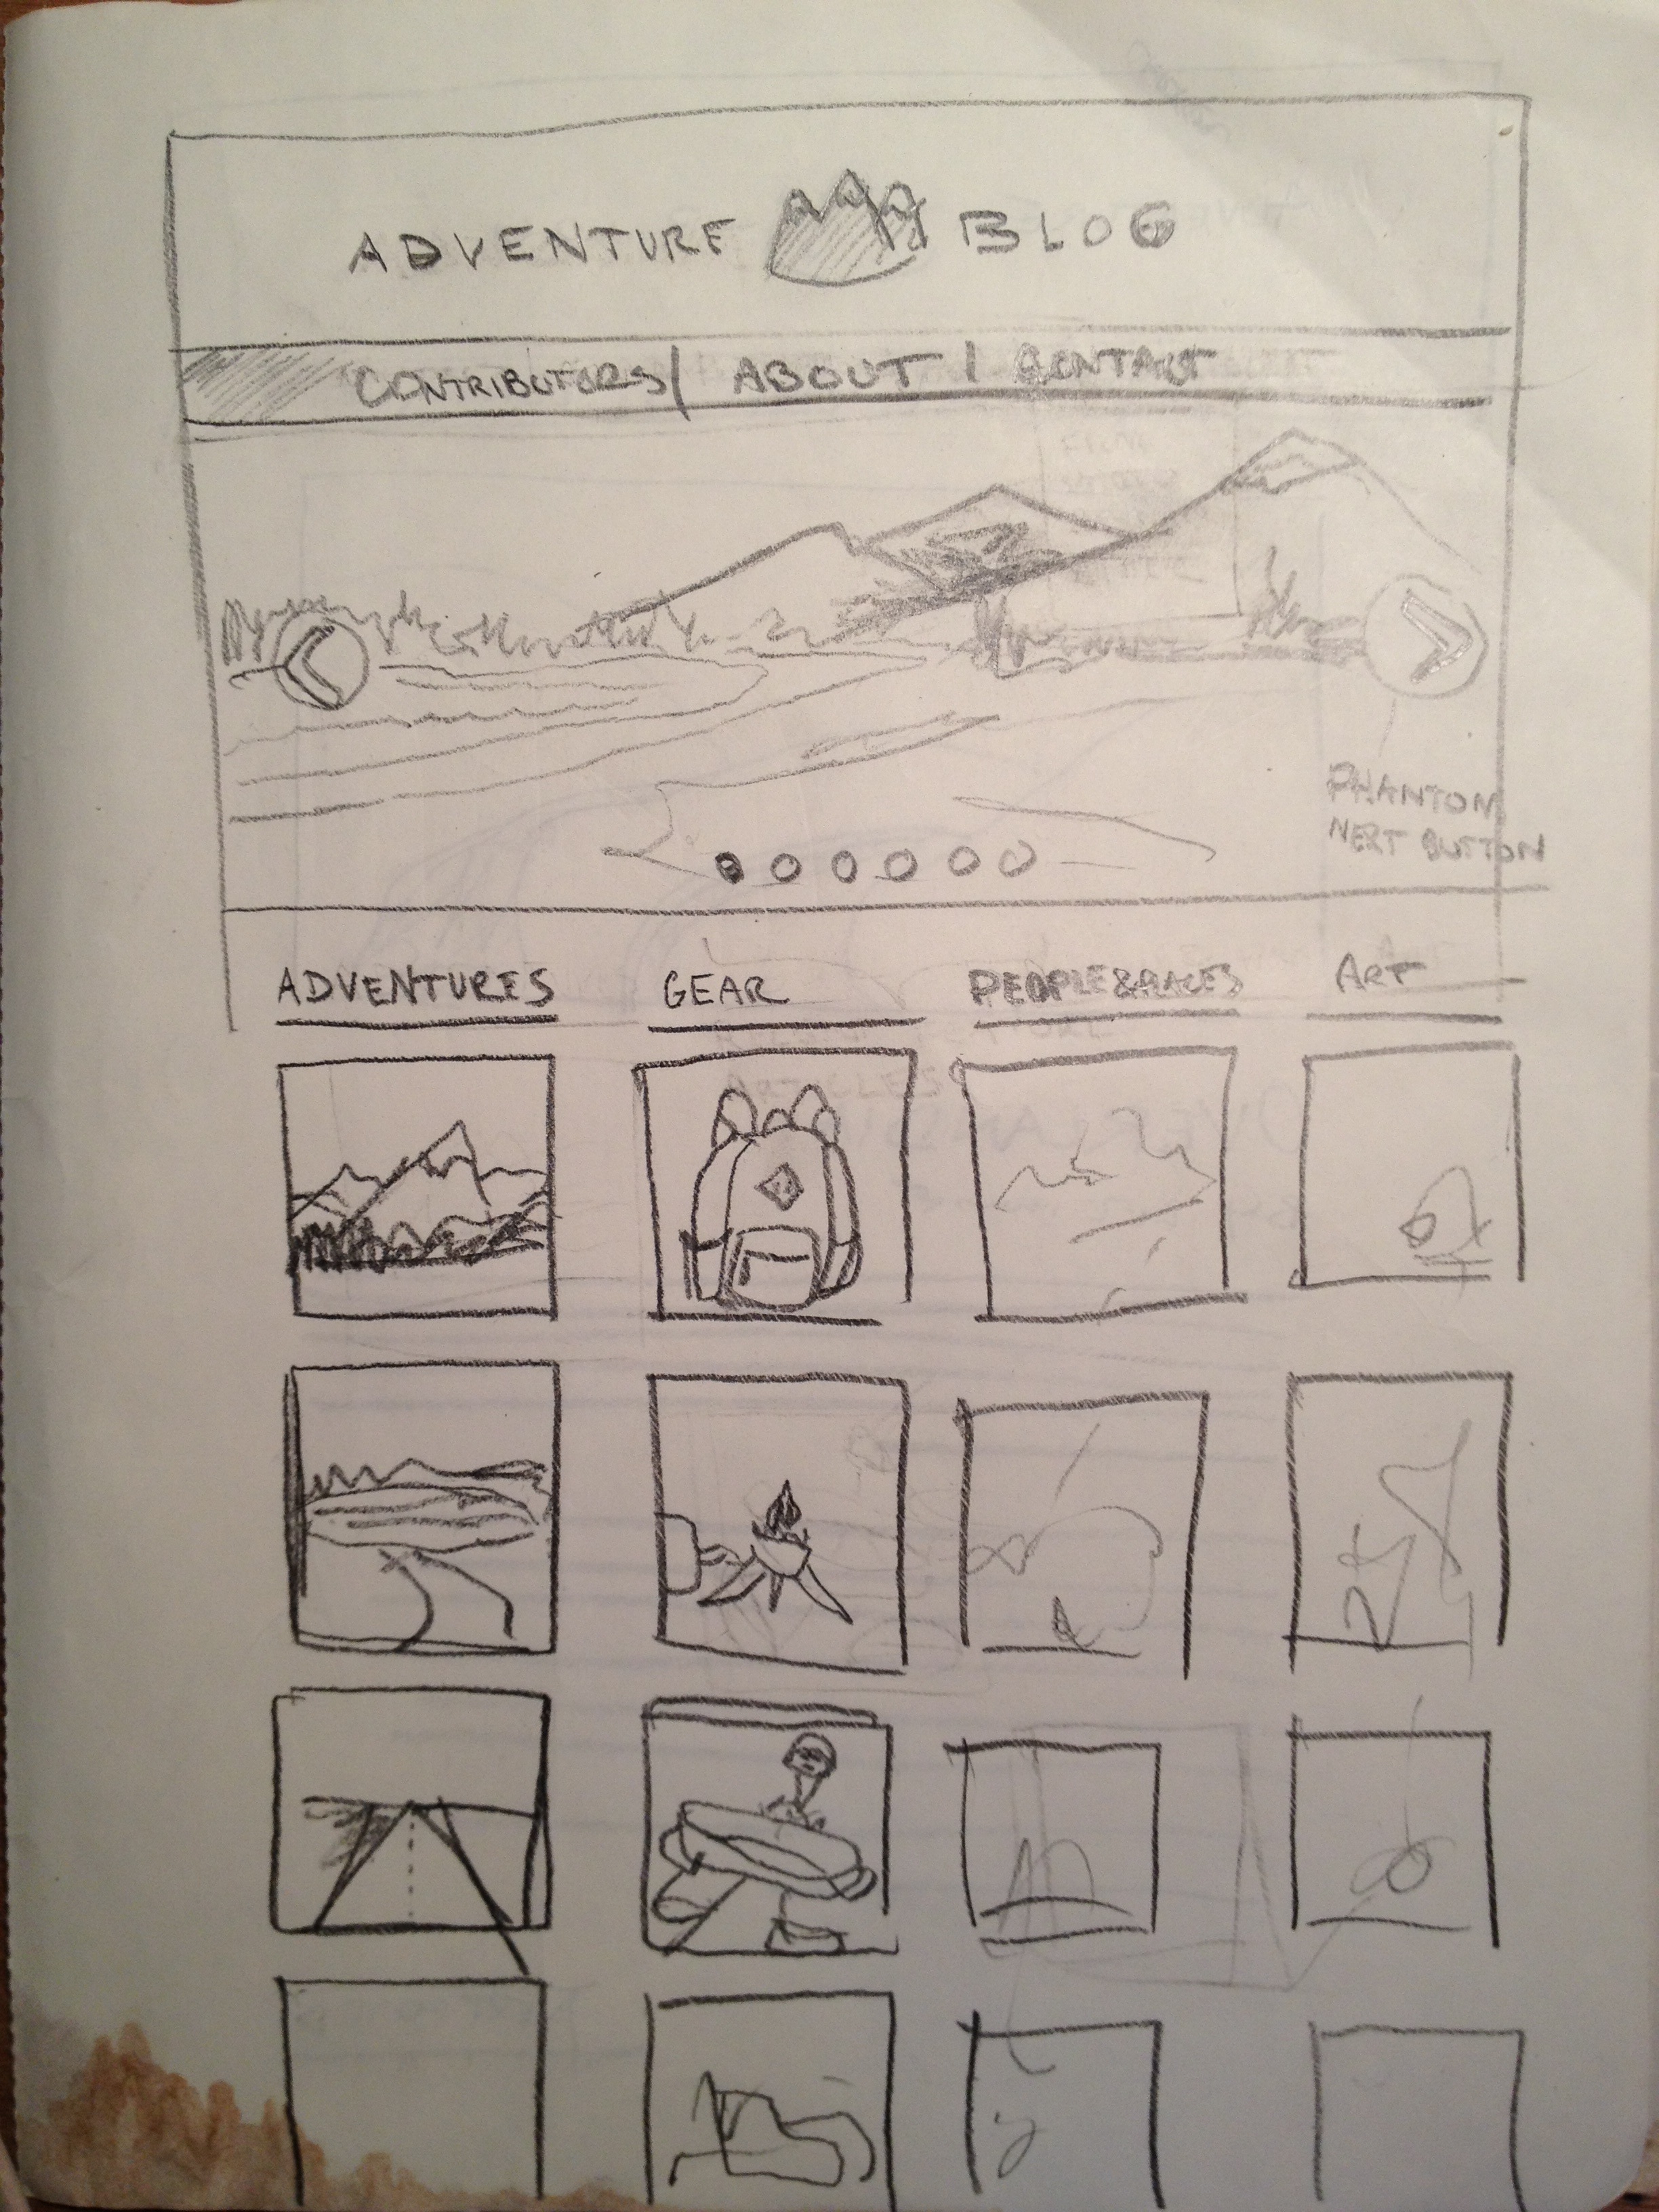 ADVENTURE BLOG
CONTRIBUTORS / ABOUT | CONTACT
PHANTOM
NEXT BUTTON
ADVENTURES GEAR PEOPLE & PLACES ART